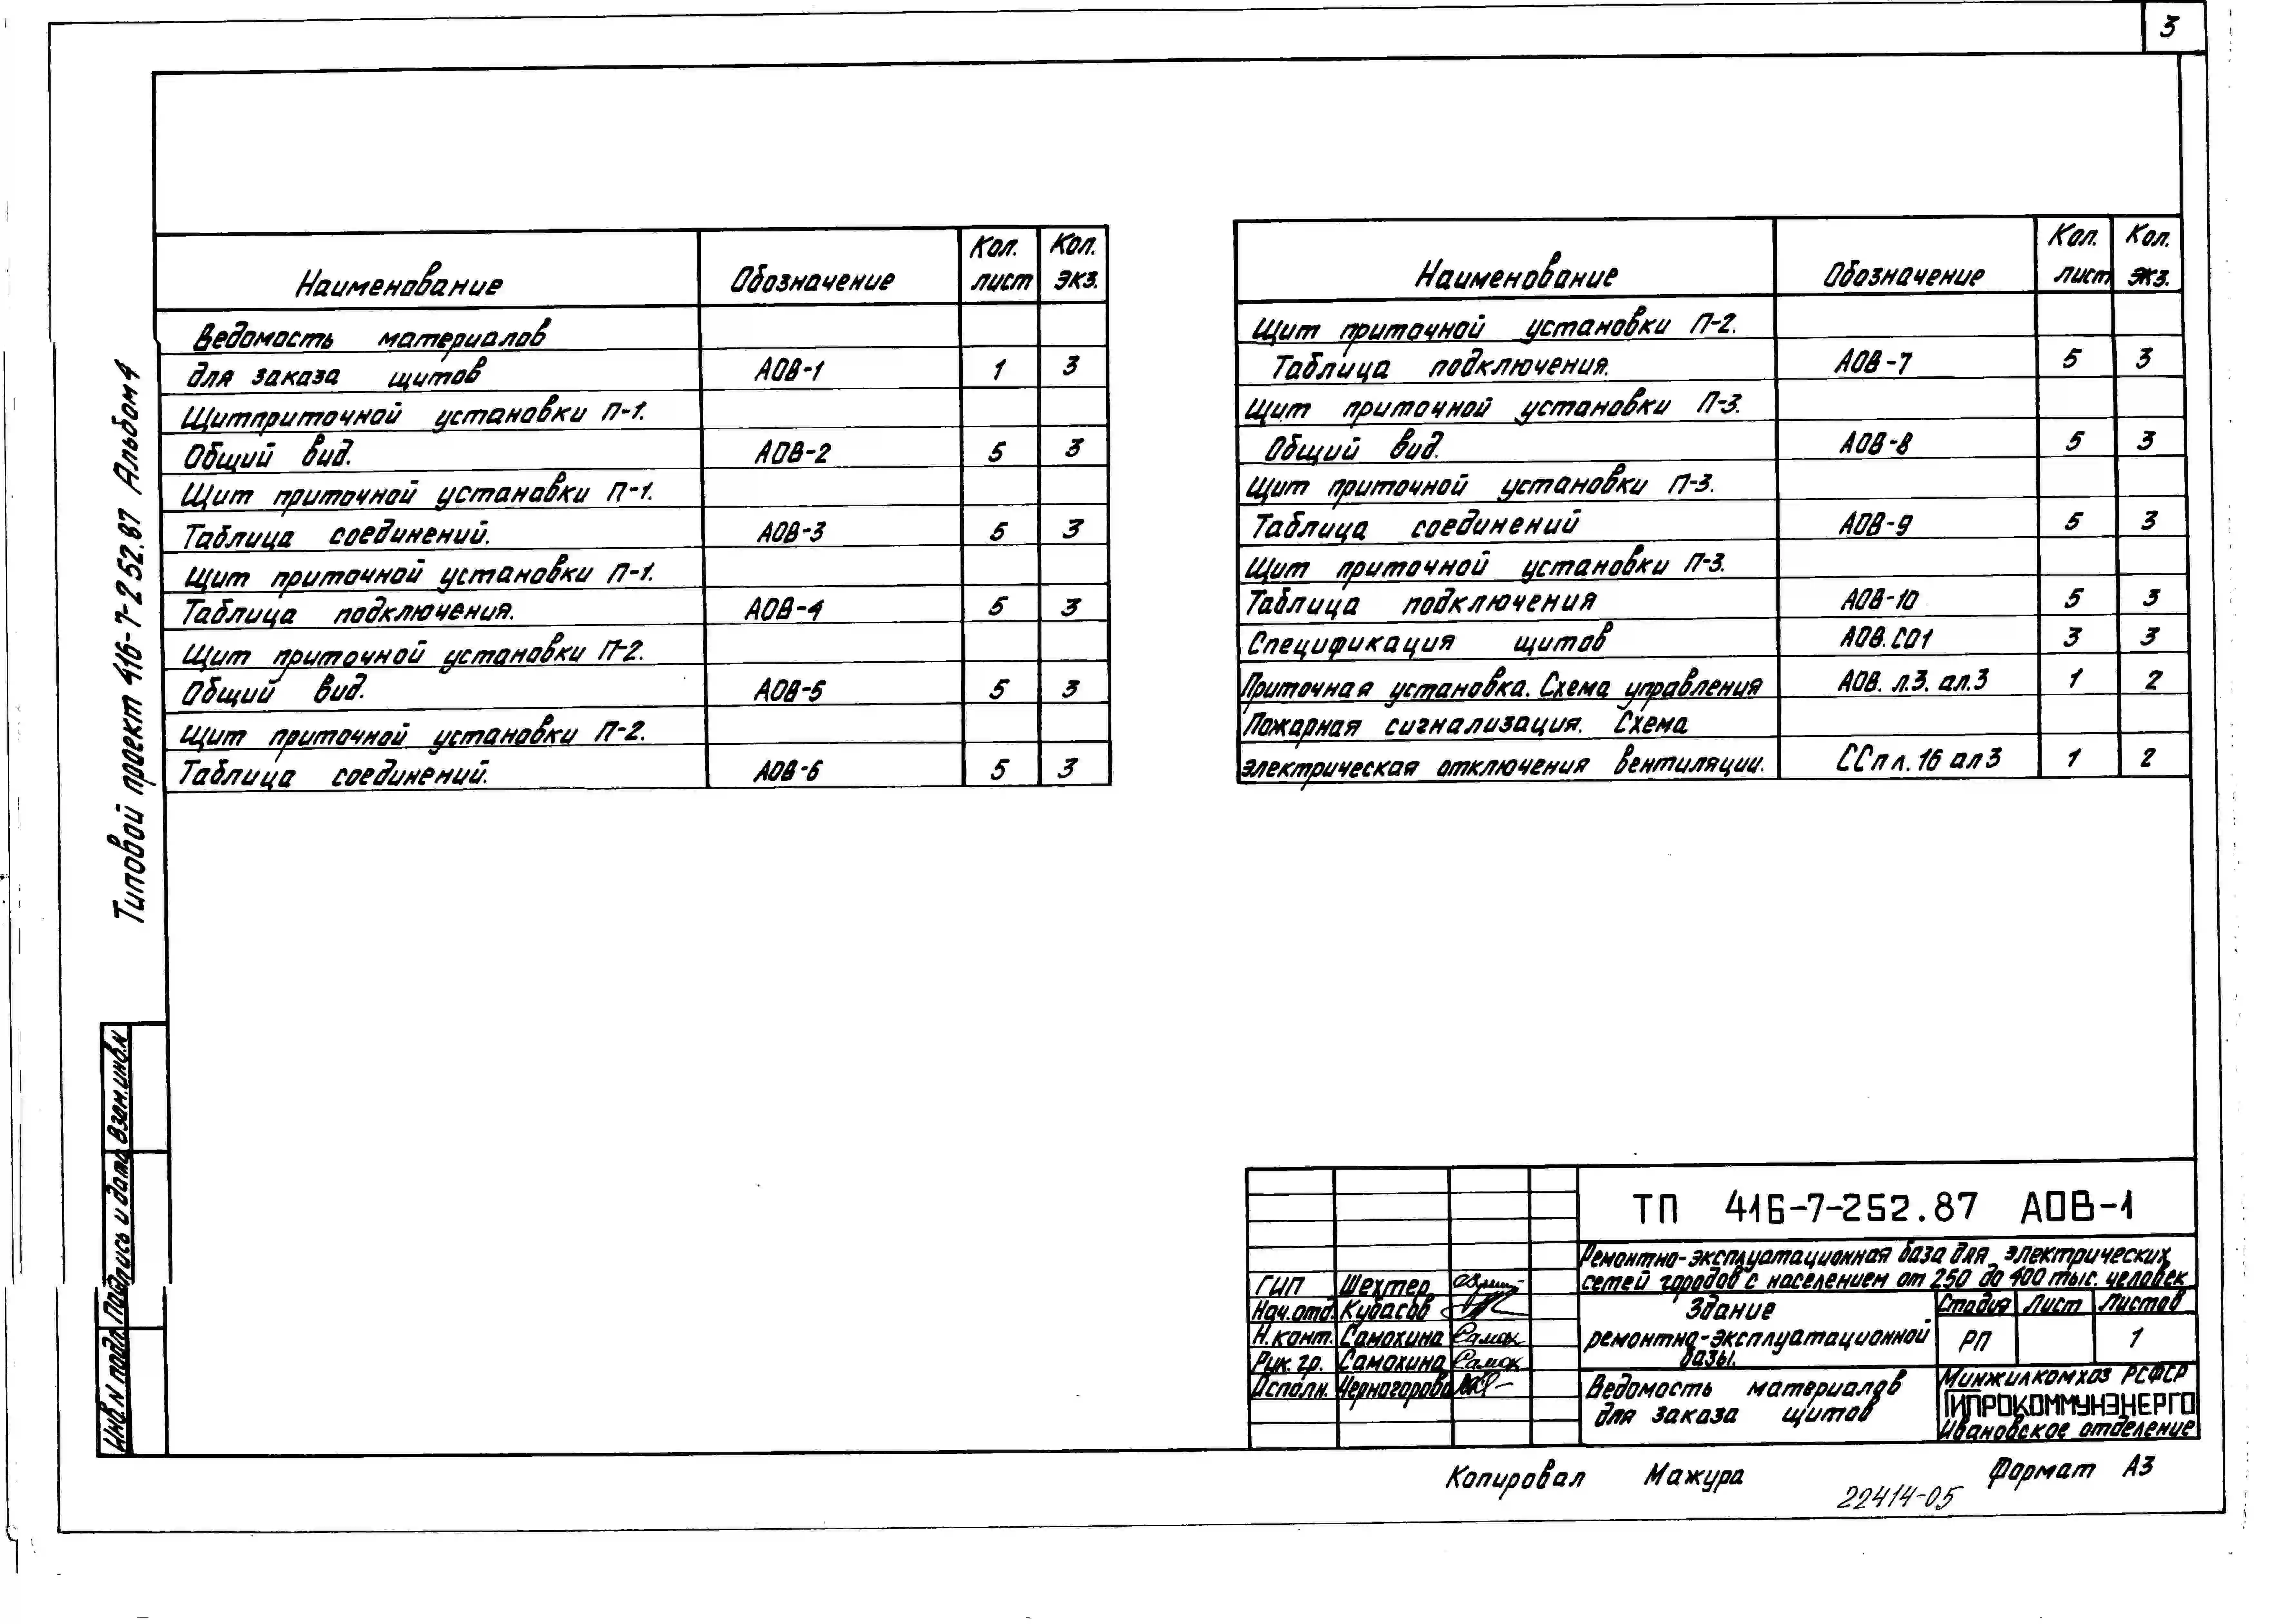 3
Типовой проект 416-7-252.87 Альбом 4
Наименование Обозначение Кол. лист Кол. экз.
Ведомость материалов
для заказа щитов АОВ-1 1 3
Щит приточной установки П-1.
Общий вид. АОВ-2 5 3
Щит приточной установки П-1.
Таблица соединений. АОВ-3 5 3
Щит приточной установки П-1.
Таблица подключения. АОВ-4 5 3
Щит приточной установки П-2.
Общий вид. АОВ-5 5 3
Щит приточной установки П-2.
Таблица соединений. АОВ-6 5 3
Наименование Обозначение Кол. лист Кол. экз.
Щит приточной установки П-2.
Таблица подключения. АОВ-7 5 3
Щит приточной установки П-3.
Общий вид. АОВ-8 5 3
Щит приточной установки П-3.
Таблица соединений АОВ-9 5 3
Щит приточной установки П-3.
Таблица подключения АОВ-10 5 3
Спецификация щитов АОВ.СО1 3 3
Приточная установка. Схема управления АОВ. л.3. ал.3 1 2
Пожарная сигнализация. Схема
электрическая отключения вентиляции. ССп л. 16 ал 3 1 2
Взам.инв.N
Подпись и дата
Инв.N подл.
ТП 416-7-252.87 АОВ-1
Ремонтно-эксплуатационная база для электрических
сетей городов с населением от 250 до 400 тыс. человек
ГИП Шехтер
Нач.отд. Кубасов
Н.конт. Самохина
Рук. гр. Самохина
Исполн. Черногорова
Здание
ремонтно-эксплуатационной
базы.
Стадия Лист Листов
РП 1
Ведомость материалов
для заказа щитов
Минжилкомхоз РСФСР
ГИПРОКОММУНЭНЕРГО
Ивановское отделение
Копировал Мажура Формат А3
22414-05